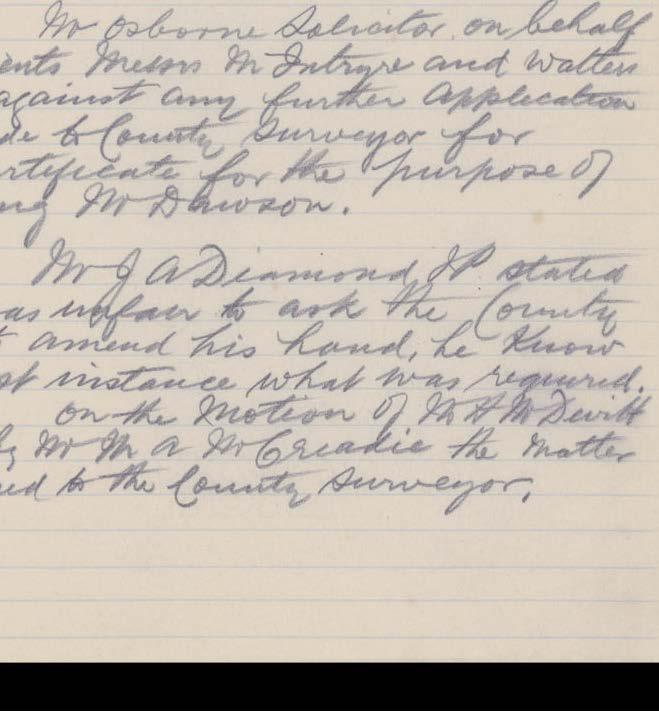 Mr Osborne Solicitor on behalf
ents Messrs McIntyre and Walters
against any further Application
de to County Surveyor for
rtificate for the purpose of
ng Mr Dawson.
Mr J A Diamond JP stated
as unfair to ask the County
amend his hand, he Know
st instance what was required.
on the Motion of McDevitt
by Mr M A McCreadie the Matter
ed to the County Surveyor,